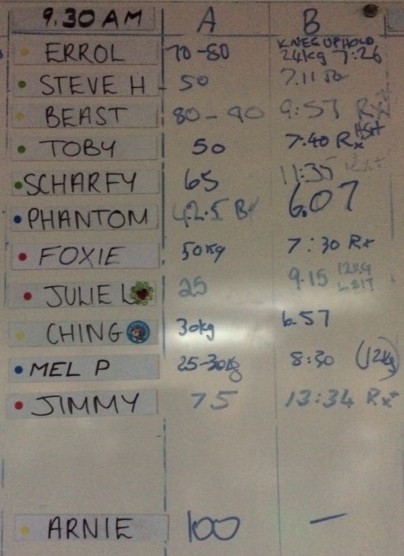 9.30 AM A B
ERROL 70-80 KNEES UP HOLD 24kg 7:26
STEVE H 50 7.11
BEAST 80-90 9:57 Rx
TOBY 50 7:40 Rx
SCHARFY 65 11:35
PHANTOM 42.5 6.07
FOXIE 50kg 7:30 Rx
JULIE L 25 9.15 12kg
CHING 30kg 6.57
MEL P 25-30kg 8:30 (12kg)
JIMMY 75 13:34 Rx+
ARNIE 100 —